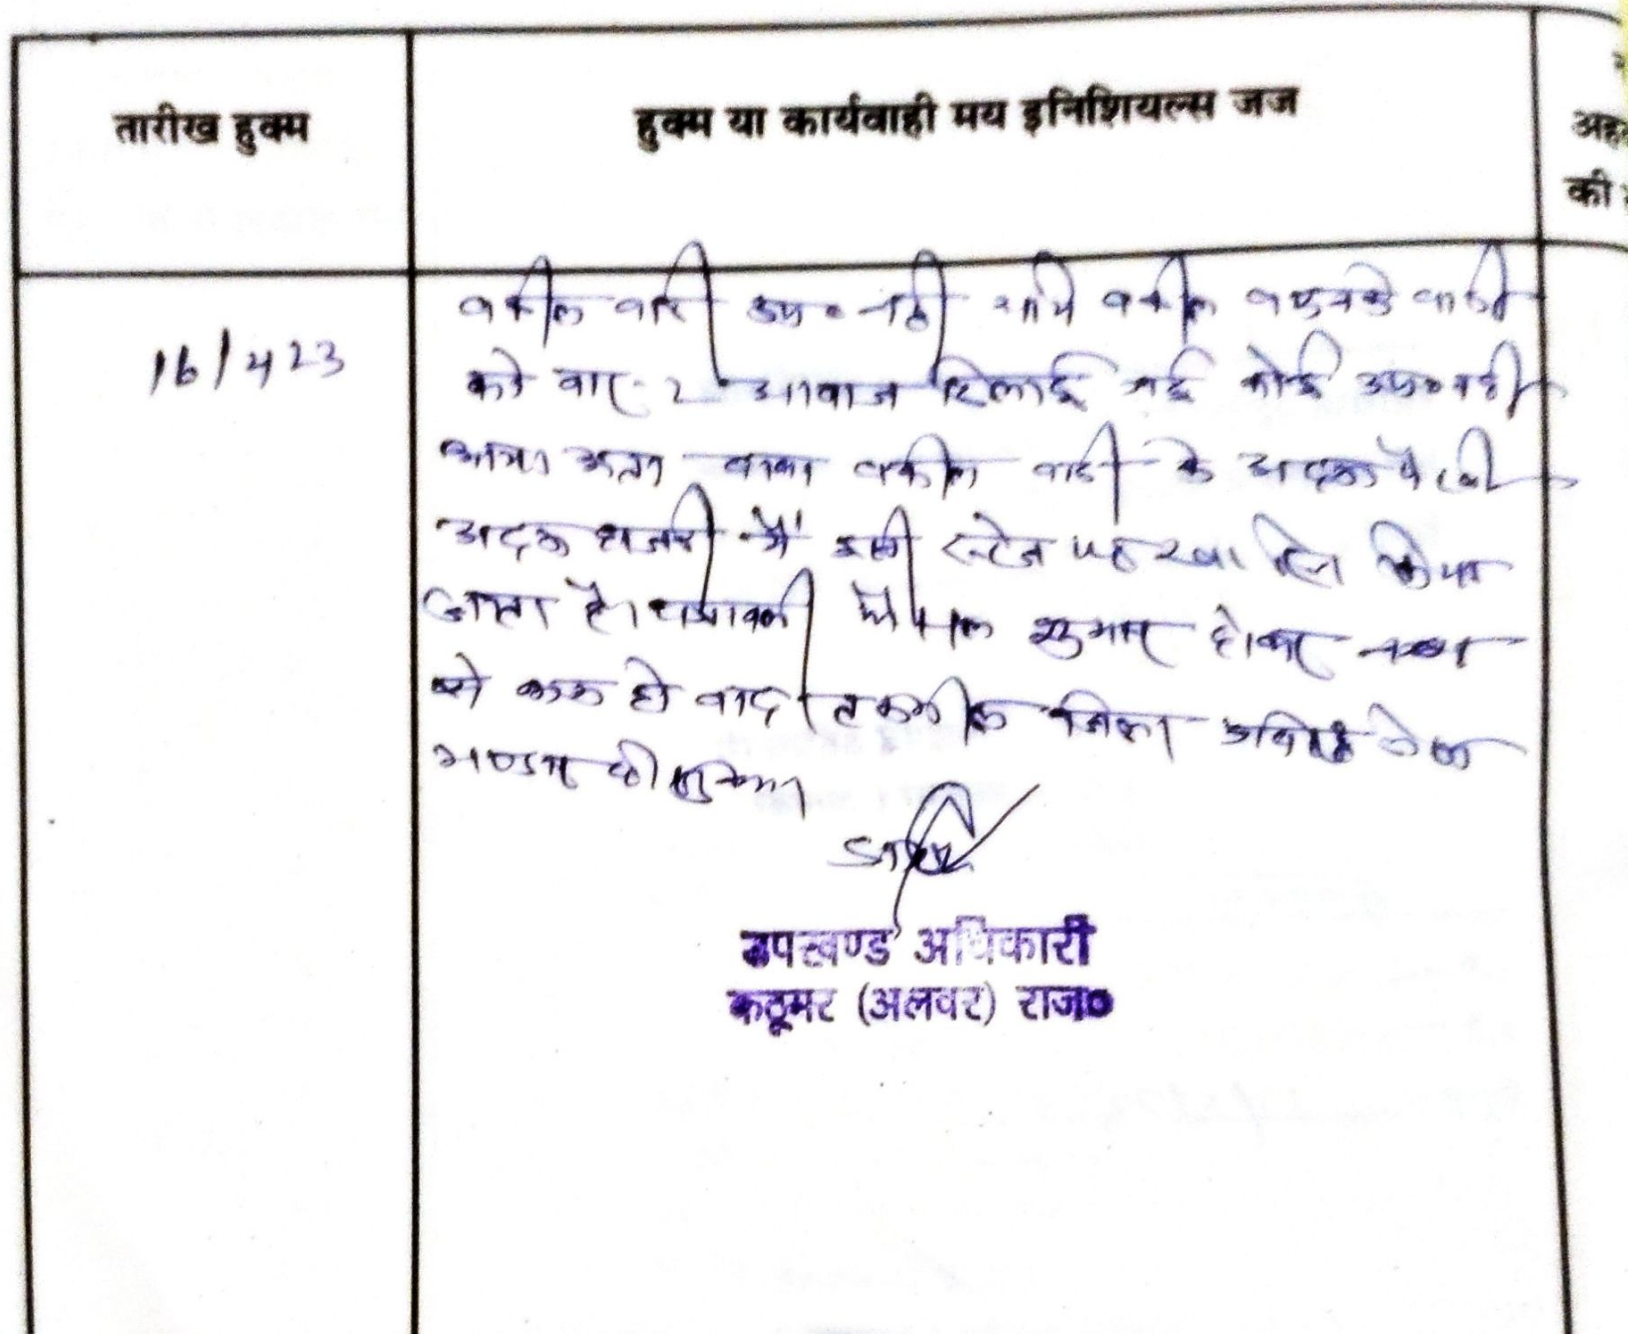 तारीख हुक्म
हुक्म या कार्यवाही मय इनिशियल्स जज
की
16/423
वकील वादी उप० नही आये वकील व वादी
को बार-2 आवाज दिलाई गई कोई उप० नही
आया अतः वाद वकील वादी के अदम पैरवी
अदम हाजरी में इसी स्टेज पर खारिज किया
जाता है। पत्रावली फैसल शुमार होकर नम्बर
से कम हो बाद तकमील जिला अभिलेख
की
उपखण्ड अधिकारी
कठूमर (अलवर) राज०